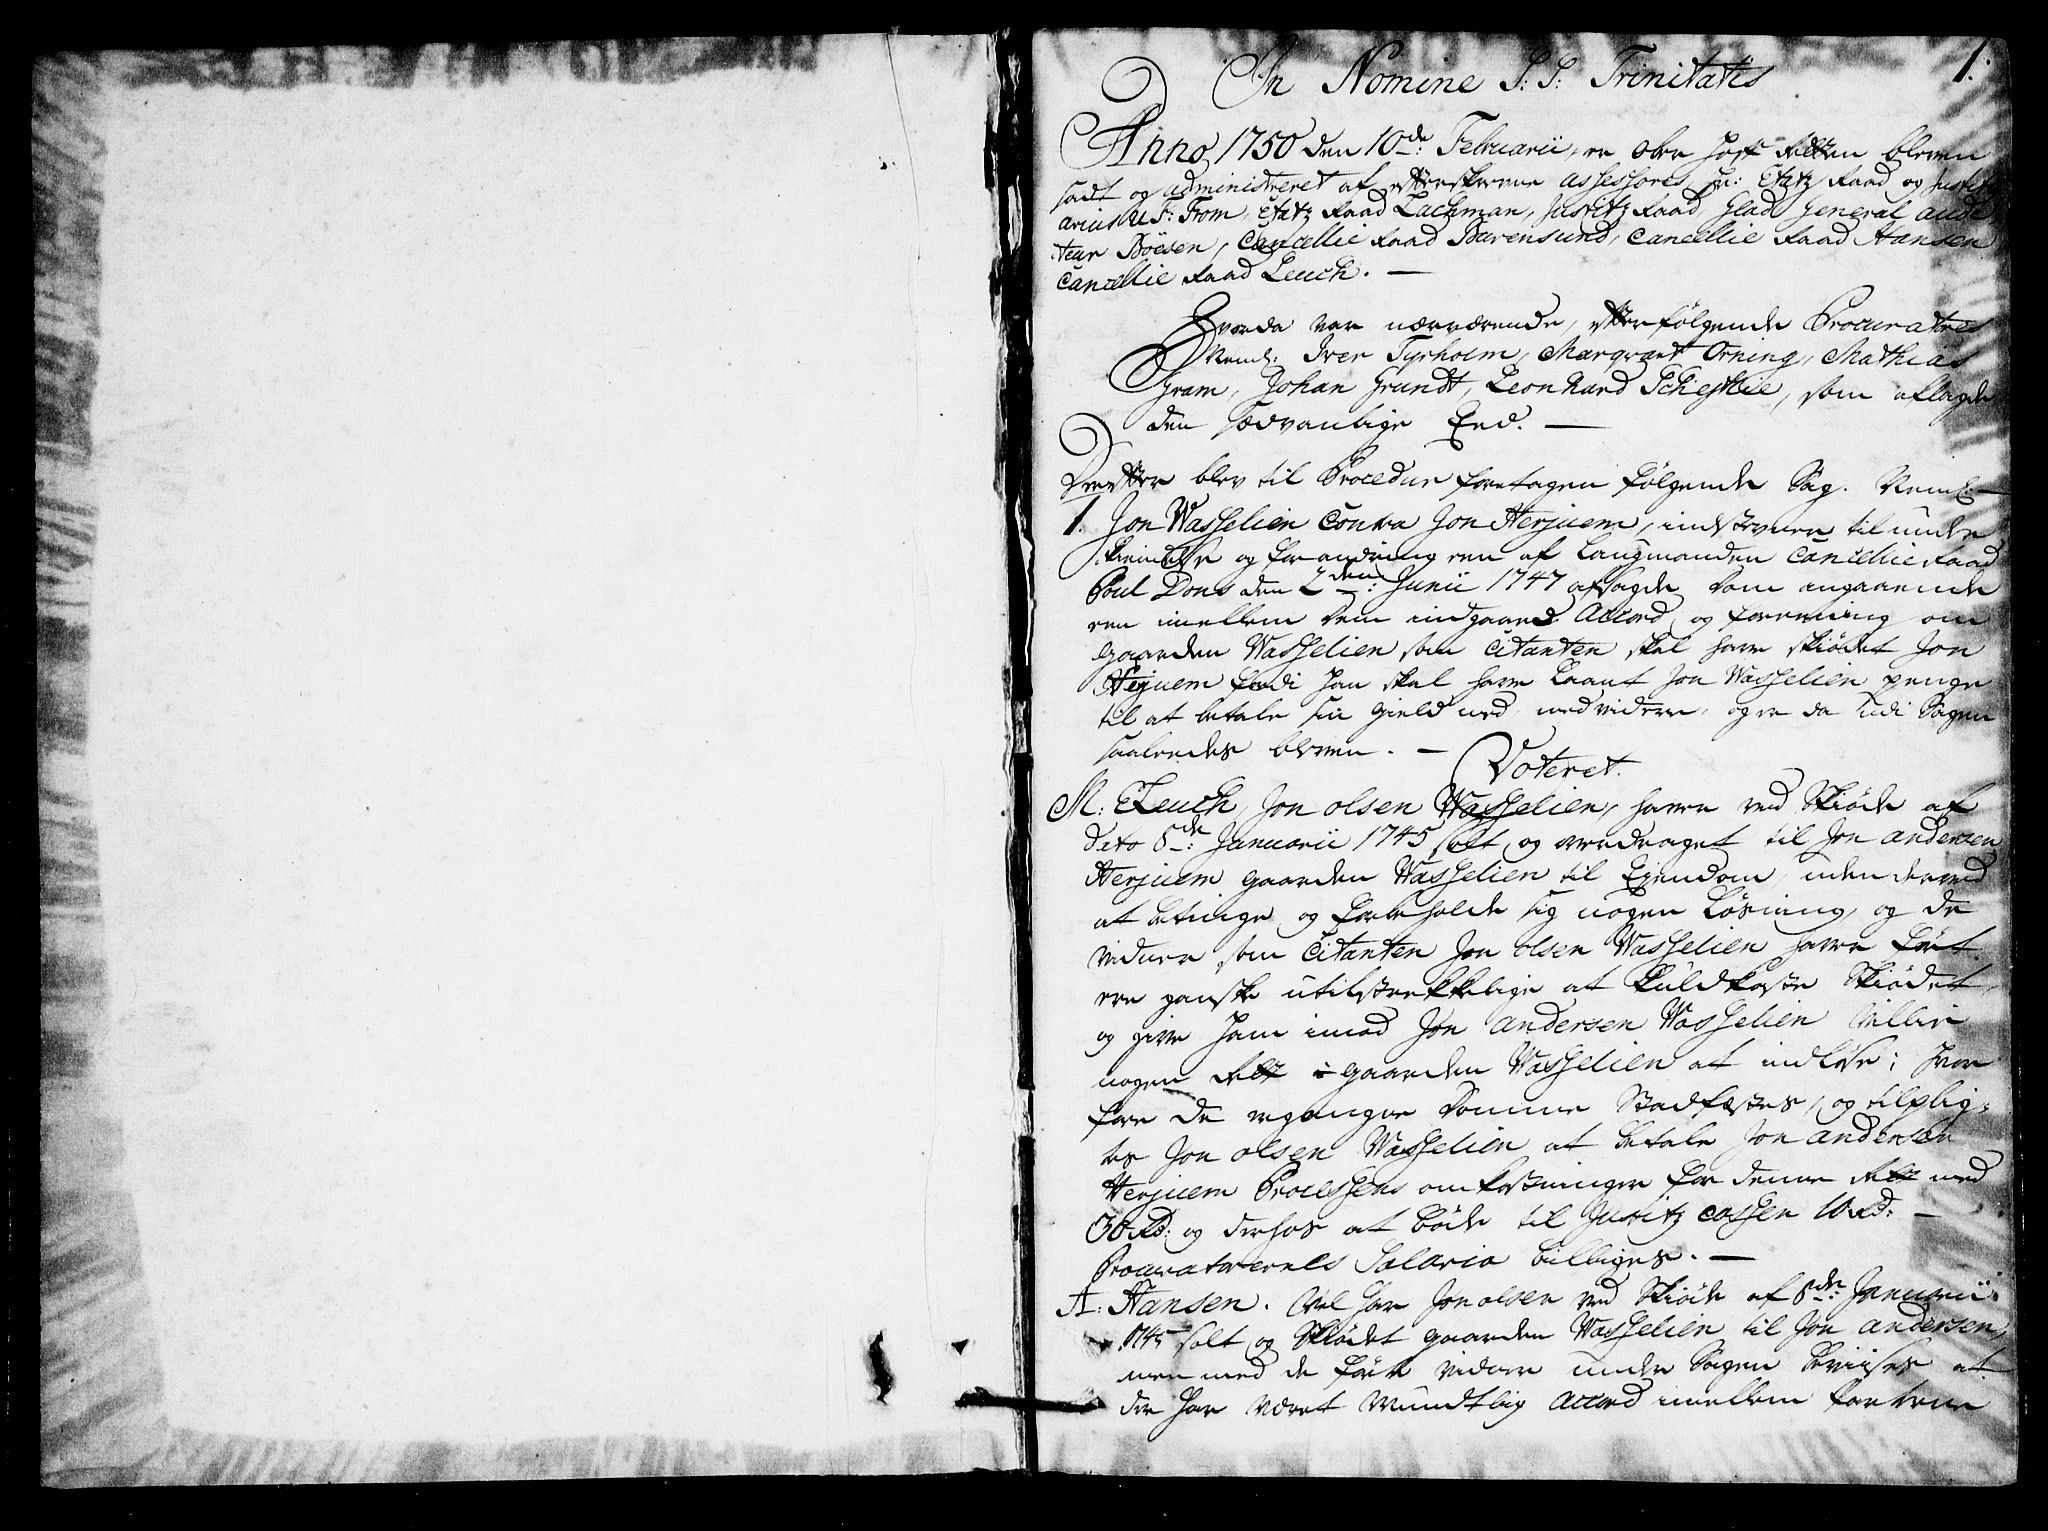 1.
In Nomine S: S: Trinitatis
Anno 1750 den 10de: Februarii, er Ober Hoff Retten bleven
sadt og administreret af efterskrevne Assessores Hr: Etatz Raad og Justiti
arius U: F: From, Etatz Raad Lachman, Justitz Raad Glad General audi
teur Böesen, Cancellie Raad Barensund, Cancellie Raad Hansen
Cancellie Raad Leuch. —
Hvorda var nærværende, efterfølgende Procuratores
Neml: Iver Tyrholm, Marqvart Orning, Mathias
Gram, Johan Grundt, Leonhard Scheftlie, som aflagde
den sædvanlige Eed. —
Derefter blev til Procedur foretagen følgende Sag. Neml: —
1. Jon Wasshelien Contra Jon Herjuem, indstevnt til unde
kiendelse og forandring een af Laugmanden Cancellie Raad
Poul Dons den 2den: Junii 1747 afsagde Dom angaaende
een imellem dem indgaaed Accord og foreening om
Gaarden Wasshelien som Citanten skal have skiödet Jon
Hejuem fordi han skal have laant Jon Wasshelien penge
til at betale sin Gield med, med videre, og er da udi Sagen
saaledes bleven. —
Voteret.
M: E Leuch, Jon olsen Wasshelien, haver ved Skiöde af
Dato 8de: Januarii 1745 solt og overdraget til Jon Andersen
Herjuem gaarden Wasshelien til Ejendom, uden derved
at betinge og forbeholde sig nogen Løsning, og de
vidner som Citanten Jon olsen Wasshelien haver ført
ere ganske utilstrekkelige at kuldkaste Skiødet,
og give ham imod Jon Andersen Wasshelien Villie
nogen Rett i gaarden Wasshelien at indløse; hvor
fore de ergangne Domme Stadfæstes, og tilplig-
tes Jon olsen Wasshelien at betale Jon Andersen
Herjuem Processens omkostninger for denne Rett med
30 Rd: og derhos at bøde til Justitz Cassen 10 Rd: —
Procuratorernes Salario billiges. —
A: Hansen. Vel har Jon olsen ved Skiøde af 8de: Januarii
1745 solt og Skiødet gaarden Wasshelien til Jon Andersen,
men med de førte vidner under Sagen bevises at
der har været mundtlig Accord imellem foe dem